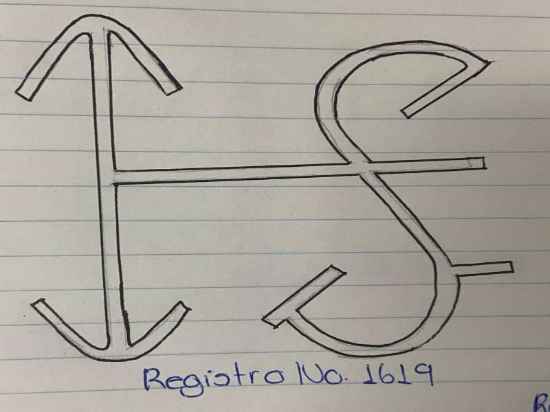 Registro No. 1619